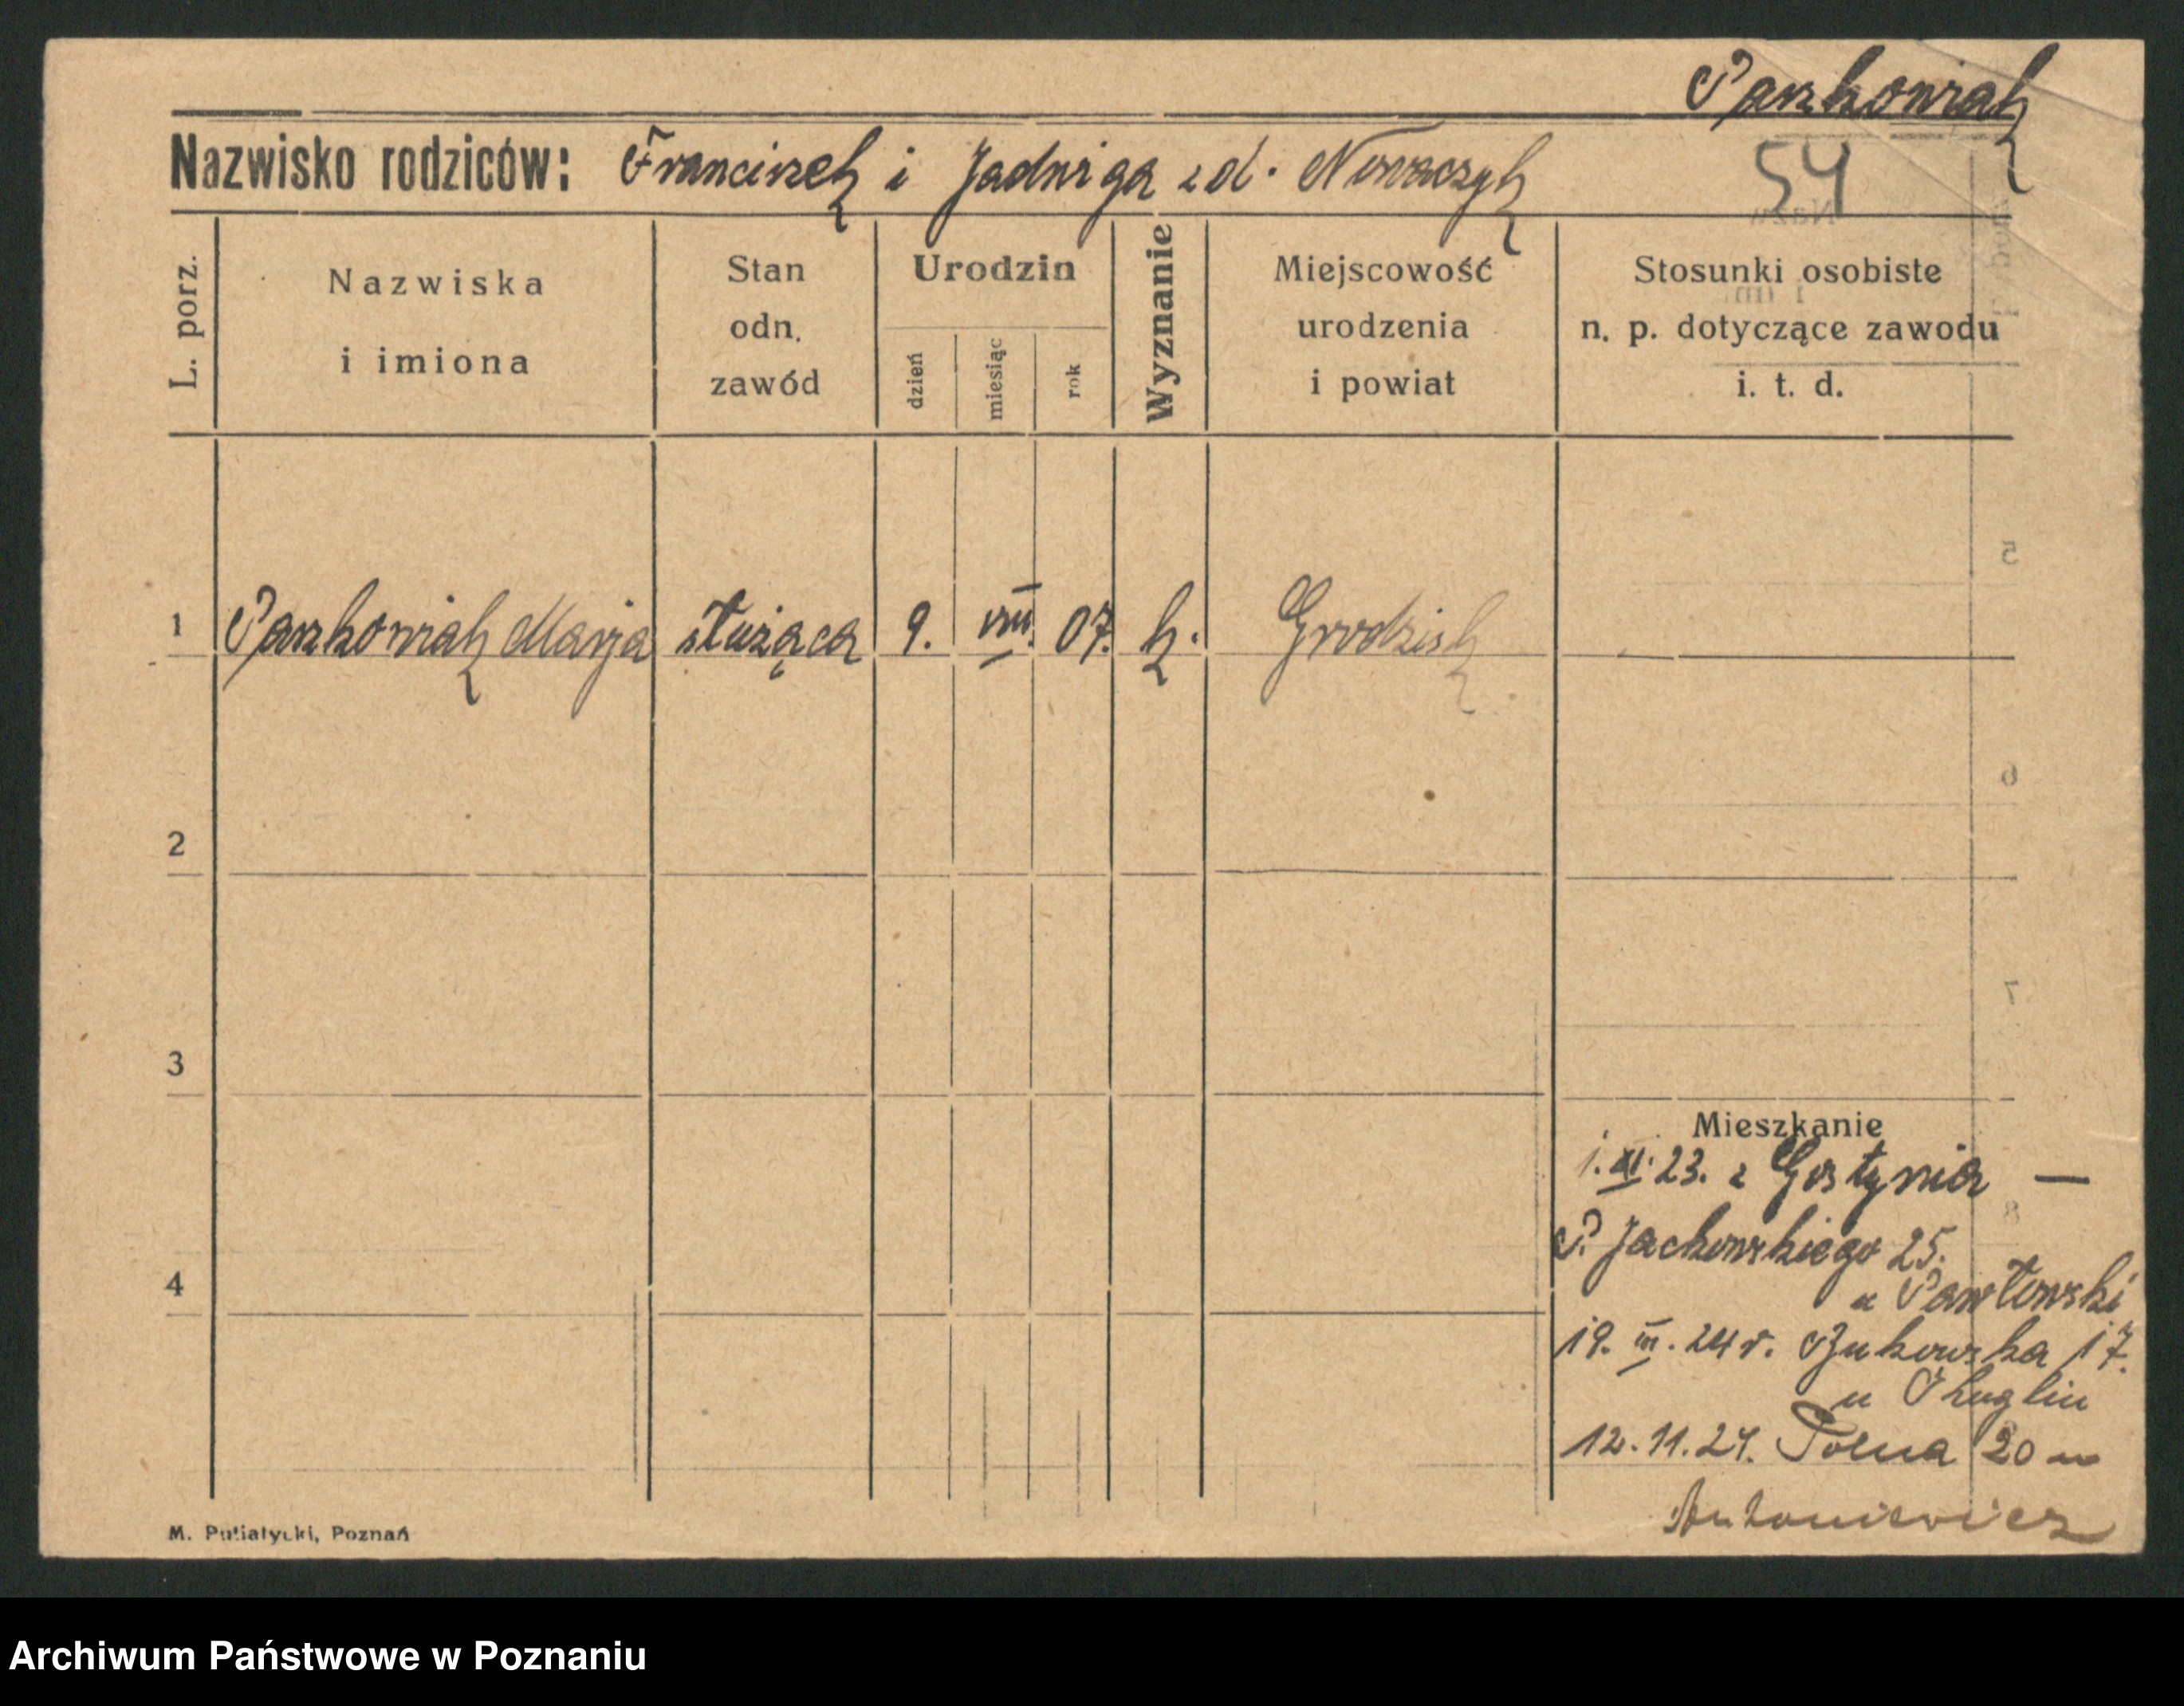 Paszkowiak
Nazwisko rodziców: Franciszek i Jadwiga z d. Nowaczyk
54
L. porz.
Nazwiska i imiona
Stan odn. zawód
Urodzin
dzień
miesiąc
rok
Wyznanie
Miejscowość urodzenia i powiat
Stosunki osobiste n. p. dotyczące zawodu i. t. d.
1 Paszkowiak Marja służąca 9. VIII. 07. k. Grodzisk
2
3
4
Mieszkanie
1. XI. 23. z Gostynia —
P. Jackowskiego 25.
u Pawłowski
19. III. 24 r. Bukowska 17.
u
12.11.24. Polna 20 u
Antoniewicz
M. Putiatycki, Poznań
Archiwum Państwowe w Poznaniu